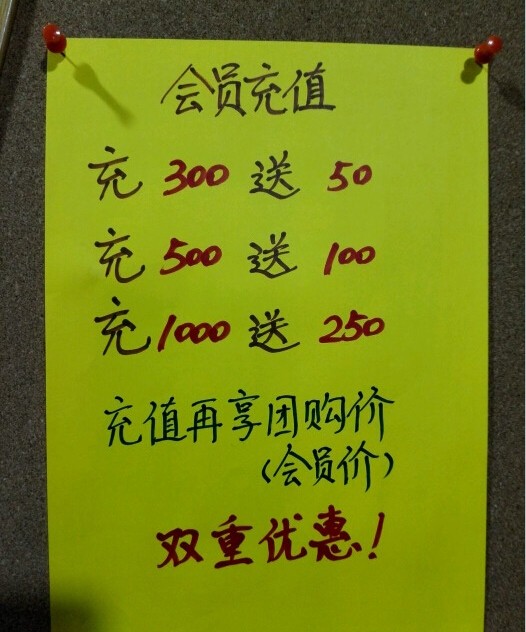 会员充值
充 300 送 50
充 500 送 100
充 1000 送 250
充值再享团购价
(会员价)
双重优惠!